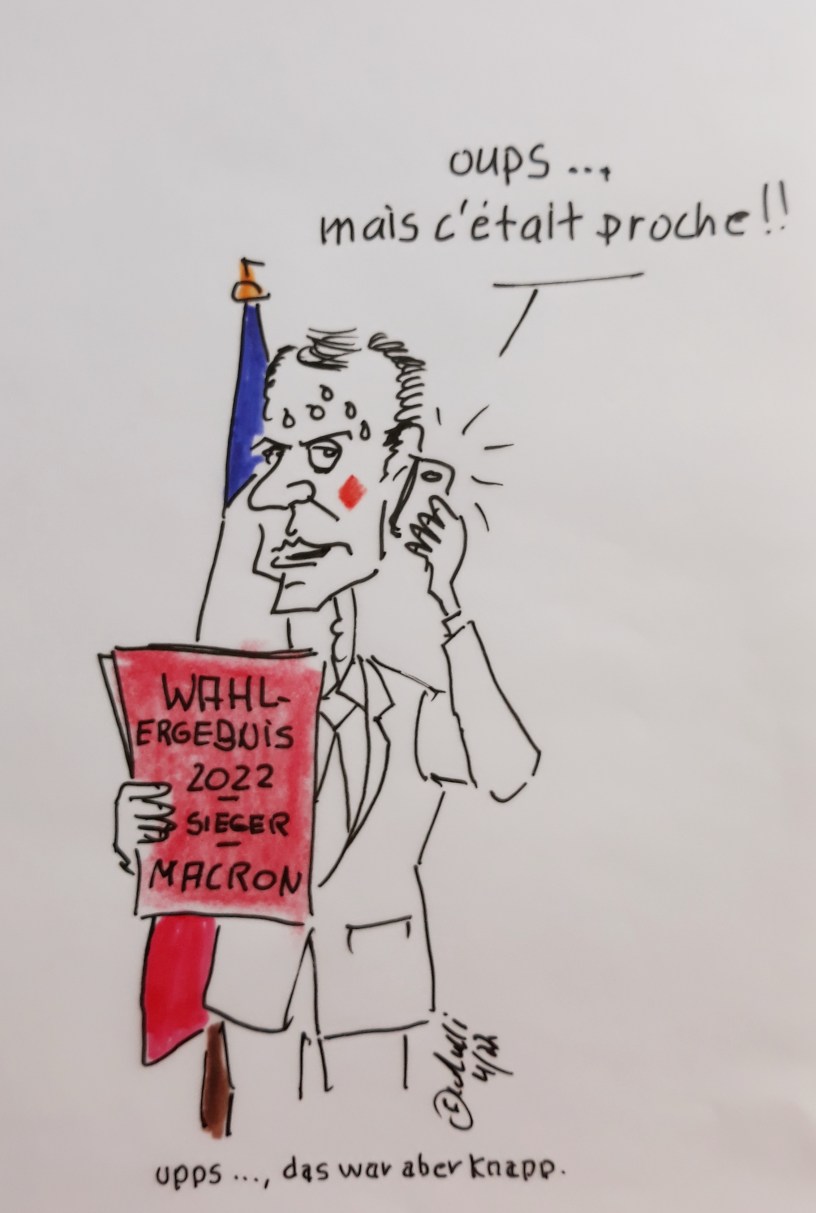 oups ...,
mais c'était proche!!
WAHL-
ERGEBNIS
2022
SIEGER
MACRON
4/22
upps ..., das war aber knapp.